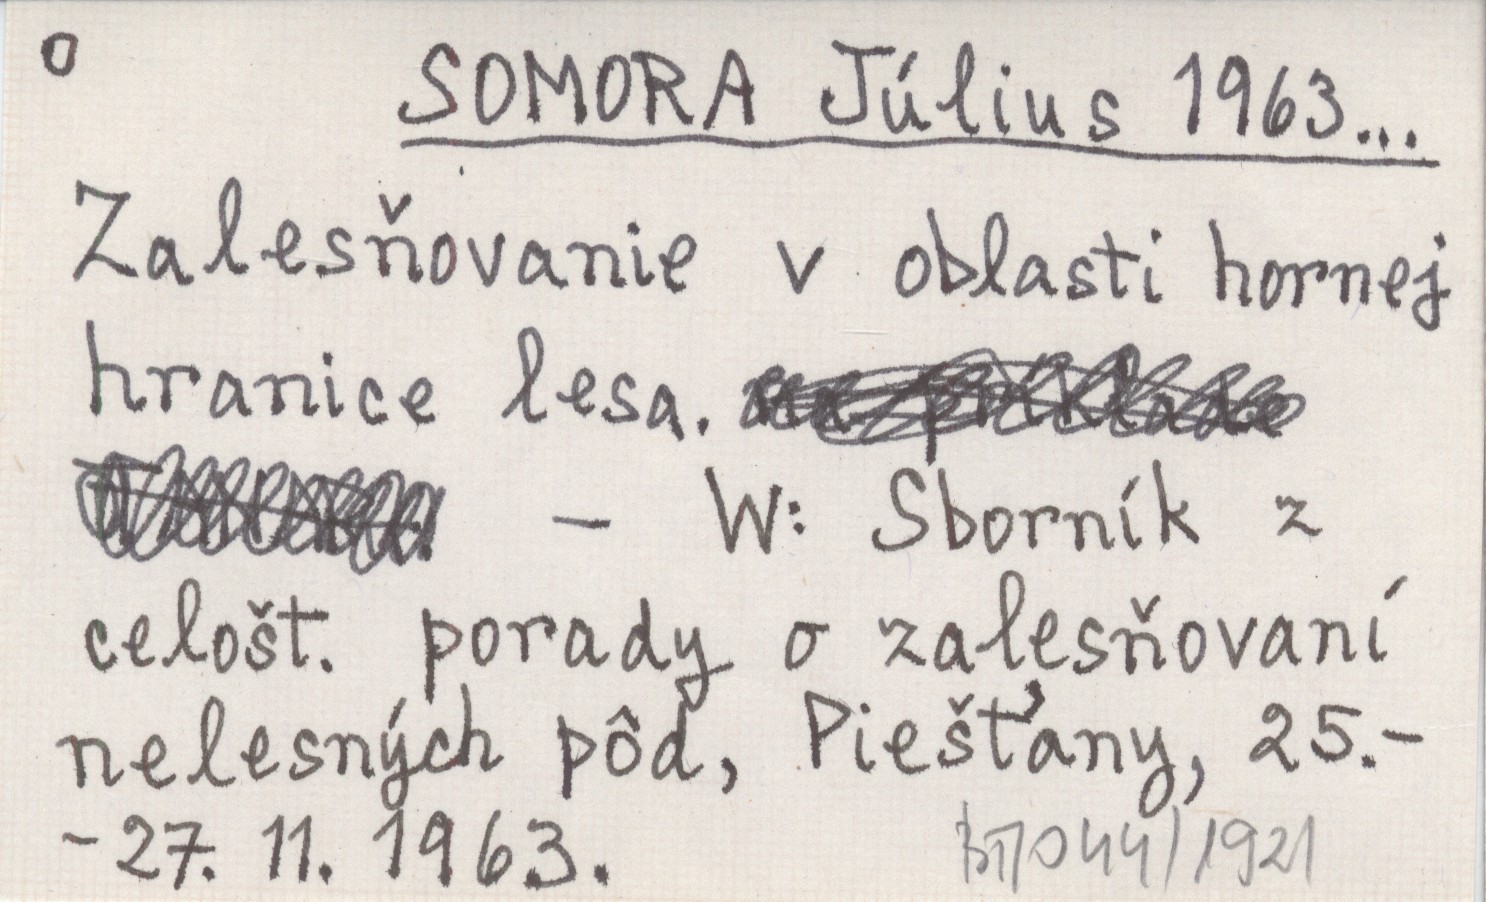 o
SOMORA Július 1963...
Zalesňovanie v oblasti hornej
hranice lesa.
– W: Sborník z
celošt. porady o zalesňovaní
nelesných pôd, Piešťany, 25.-
-27. 11. 1963.